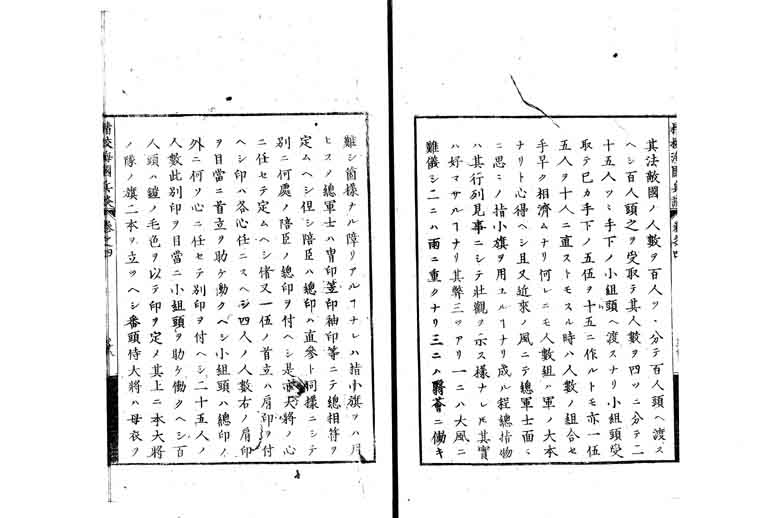 其法敵國ノ人數ヲ百人ツヽ分テ百人頭ヘ渡ス
ヘシ百人頭之ヲ受取テ其人數ヲ四ツニ分テ二
十五人ツヽ手下ノ小組頭ヘ渡スナリ小組頭受
取テ已カ手下ノ五伍ヲ十五ニ作ルトモ亦一伍
五人ヲ十人ニ直ストモスル時ハ人數ノ組合セ
手早ク相濟ムナリ何レニモ人數組ハ軍ノ大本
ナリト心得ヘシ且又近來ノ風ニテ總軍士面々
ニ思ニノ指小旗ヲ用ユルヿナリ成ル程總指物
ハ其行列見事ニシテ壯觀ヲ示ス樣ナレ𪜈其實
ハ好マサルヿナリ其弊三ツアリ一ニハ大風ニ
難儀シ二ニハ雨ニ重クナリ三ニハ蘙薈ニ働キ
難シ箇樣ナル障リアルヿナレハ指小旗ヲハ用
ヒスノ總軍士ハ冑印笠印袖印等ニテ總相符ヲ
定ムヘシ但シ陪臣ハ總印ハ直參ト同樣ニシテ
別ニ何處ノ陪臣ノ總印ヲ付ヘシ是亦大將ノ心
ニ任セテ定ムヘシ偖又一伍ノ首立ハ肩印ヲ付
ヘシ印ハ各心任ニスヘシ四人ノ人數右ノ肩印
ヲ目當ニ首立ヲ助ケ働クヘシ小組頭ハ總印ノ
外ニ何ソ心ニ任セテ別印ヲ付ヘシ二十五人ノ
人數此別印ヲ目當ニ小組頭ヲ助ケ働クヘシ百
人頭ハ鑓ノ毛色ヲ以テ印ヲ定メ其上ニ本大將
ノ隊ノ旗二本ヲ立ツヘシ番頭侍大將ハ母衣ヲ
精校海國兵談 卷之四